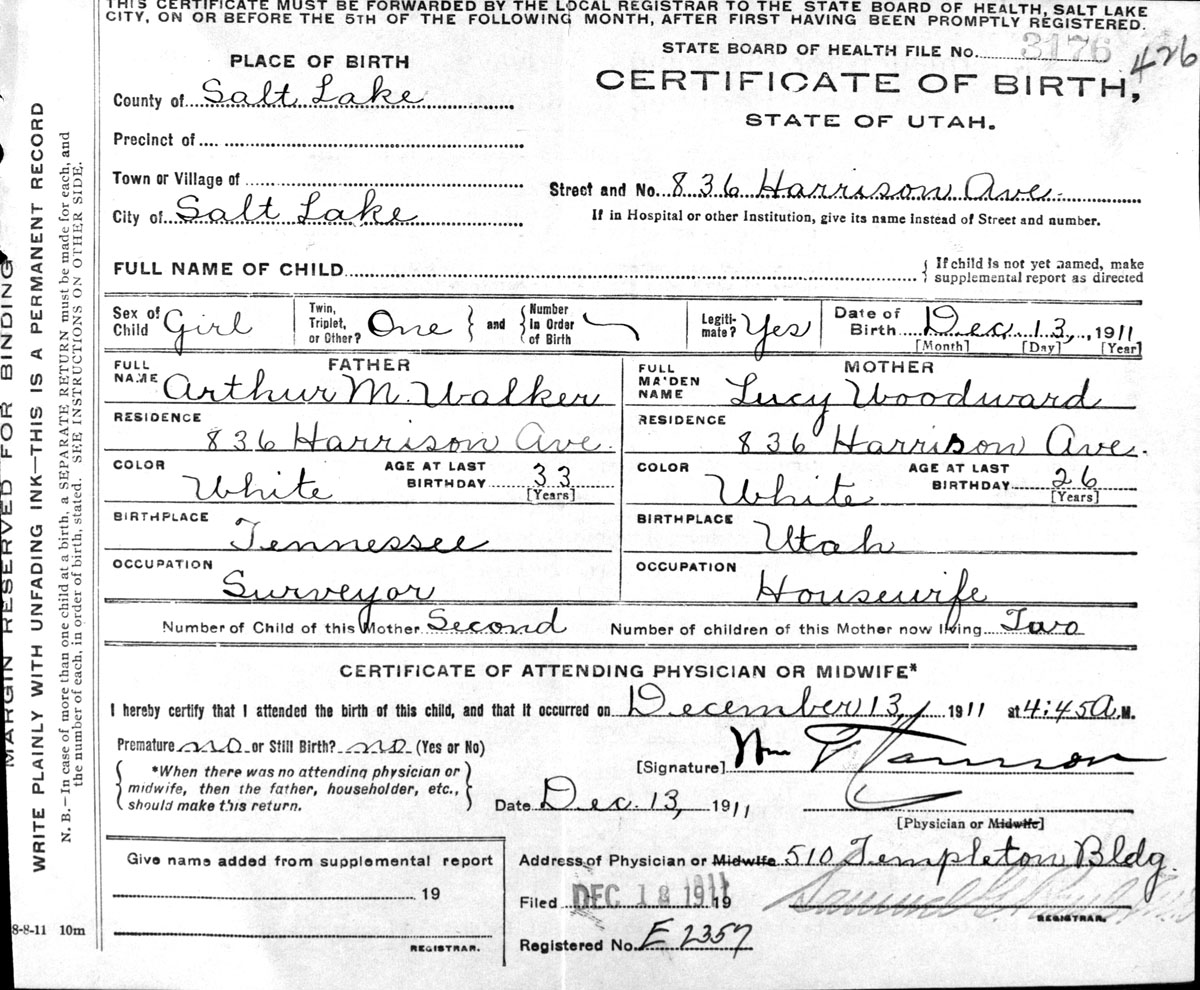 THIS CERTIFICATE MUST BE FORWARDED BY THE LOCAL REGISTRAR TO THE STATE BOARD OF HEALTH, SALT LAKE
CITY, ON OR BEFORE THE 5TH OF THE FOLLOWING MONTH, AFTER FIRST HAVING BEEN PROMPTLY REGISTERED.
STATE BOARD OF HEALTH FILE No. 3176 426
PLACE OF BIRTH
CERTIFICATE OF BIRTH,
STATE OF UTAH.
County of Salt Lake
Precinct of
Town or Village of
Street and No. 836 Harrison Ave.
City of Salt Lake
If in Hospital or other Institution, give its name instead of Street and number.
FULL NAME OF CHILD
{ If child is not yet named, make
supplemental report as directed
Sex of Child Girl
Twin, Triplet, or Other? One } and { Number in Order of Birth
Legitimate? Yes
Date of Birth Dec. 13, 1911
[Month] [Day] [Year]
FATHER
FULL NAME Arthur M. Walker
MOTHER
FULL MAIDEN NAME Lucy Woodward
RESIDENCE 836 Harrison Ave.
RESIDENCE 836 Harrison Ave.
COLOR White AGE AT LAST BIRTHDAY 33 [Years]
COLOR White AGE AT LAST BIRTHDAY 26 [Years]
BIRTHPLACE Tennessee
BIRTHPLACE Utah
OCCUPATION Surveyor
OCCUPATION Housewife
Number of Child of this Mother Second Number of children of this Mother now living Two
CERTIFICATE OF ATTENDING PHYSICIAN OR MIDWIFE*
I hereby certify that I attended the birth of this child, and that it occurred on December 13, 1911 at 4:45 A. M.
Premature no or Still Birth? no (Yes or No)
[Signature] Wm
{ *When there was no attending physician or
midwife, then the father, householder, etc.,
should make this return. }
Date Dec. 13, 1911
[Physician or Midwife]
Give name added from supplemental report
19
REGISTRAR.
Address of Physician or Midwife 510 Templeton Bldg.
Filed DEC 18 1911 19
Samuel G.
REGISTRAR.
Registered No. E 2357
8-8-11 10m
MARGIN RESERVED FOR BINDING
WRITE PLAINLY WITH UNFADING INK—THIS IS A PERMANENT RECORD
N. B.—In case of more than one child at a birth, a SEPARATE RETURN must be made for each, and
the number of each, in order of birth, stated. SEE INSTRUCTIONS ON OTHER SIDE.